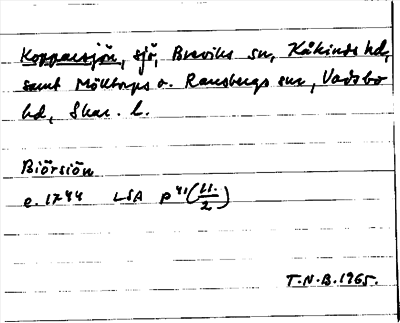 Kopparsjön, sjö, Breviks sn, Kåkinds hd,
samt Mölltorps o. Ransbergs snr, Vadsbo
hd, Skar. l.
Biörsiön
e. 1744 LSA P 41 (11/2)
T.N.B. 1965.